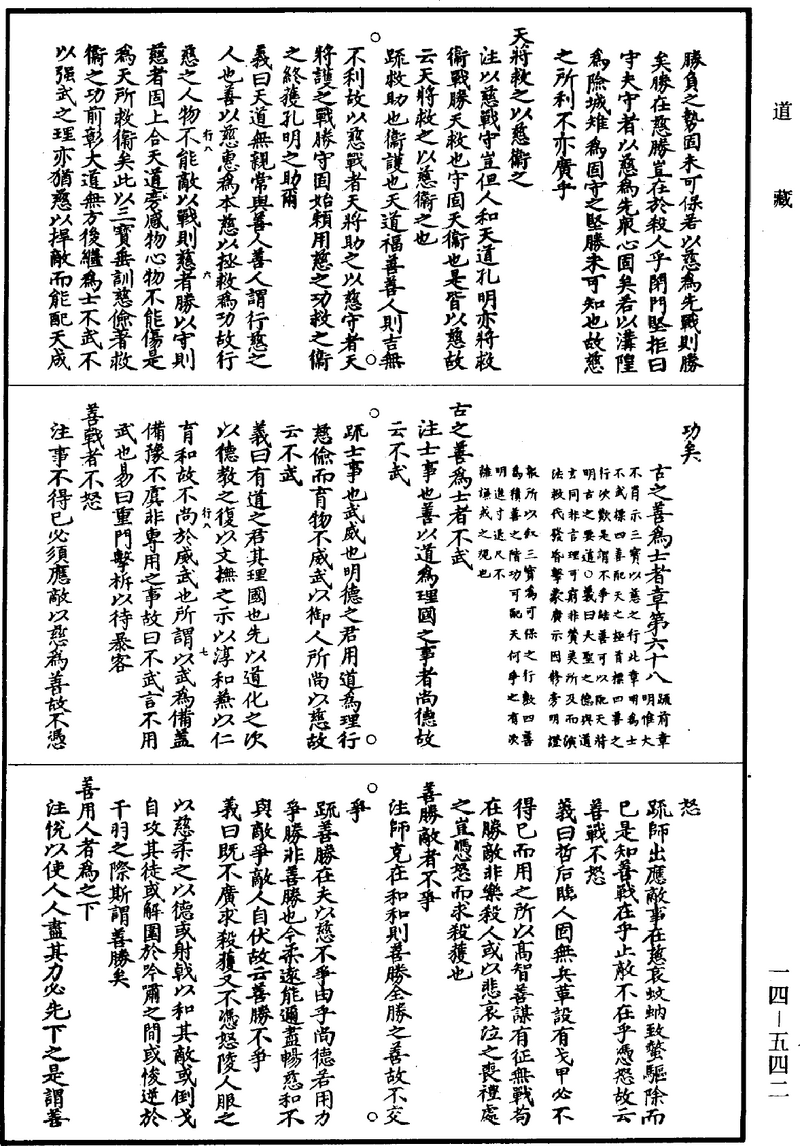 道藏
勝負之勢固未可保若以慈爲先戰則勝
矣勝在慈勝豈在於殺人乎閉門堅拒曰
守夫守者以慈爲先衆心固矣若以溝隍
爲險城雉爲固守之堅勝未可知也故慈
之所利不亦廣乎
天將救之以慈衞之
注以慈戰守豈但人和天道孔明亦將救
衞戰勝天救也守固天衞也是皆以慈故
云天將救之以慈衞之也
疏救助也衞護也天道福善善人則吉無
不利故以慈戰者天將助之以慈守者天
將護之戰勝守固始賴用慈之功救之衞
之終獲孔明之助爾
義曰天道無親常與善人善人謂行慈之
人也善以慈惠爲本慈以拯救爲功故行
慈之人物不能敵以戰則慈者勝以守則
慈者固上合天道旁感物心物不能傷是
爲天所救衞矣此以三寳垂訓慈儉著救
衞之功前彰大道無方後繼爲士不武不
以强武之理亦猶慈以捍敵而能配天成
功矣
古之善爲士者章第六十八
疏前章明惟大
不肖示三寳以慈之行此章明爲士
不武標四善配天之極首標四善之
行次歎是謂不爭結善可以配天將
明古之要道○義曰大聖之德與道
玄同非言理可窮非贊美所及而演
法救代發昏擊蒙廣示因修旁明證
報所以紅三寳爲可保之行數四善
爲積善之階功可配天何爭之有次
明進寸退尺不
雜誤戒之規也
古之善爲士者不武
注士事也善以道爲理國之事者尚德故
云不武
疏士事也武威也明德之君用道爲理行
慈儉而育物不威武以御人所尚以慈故
云不武
義曰有道之君其理國也先以道化之次
以德教之復以文撫之示以淳和兼以仁
育和故不尚於威武也所謂以武爲備蓋
備豫不虞非專用之事故曰不武言不用
武也易曰重門擊柝以待暴客
善戰者不怒
注事不得已必須應敵以慈爲善故不憑
怒
疏師出應敵事在慈哀蚊蚋致螫驅除而
已是知善戰在乎止敵不在乎憑怒故云
善戰不怒
義曰哲后臨人固無兵革設有戈甲必不
得已而用之所以高智善謀有征無戰苟
在勝敵非樂殺人或以悲哀泣之喪禮處
之豈憑怒而求殺獲也
善勝敵者不爭
注師克在和和則善勝全勝之善故不交
爭
疏善勝在夫以慈不爭由乎尚德若用力
爭勝非善勝也今柔遠能邇盡暢慈和不
與敵爭敵人自伏故云善勝不爭
義曰既不廣求殺獲又不憑怒陵人服之
以慈柔之以德或射戟以和其敵或倒戈
自攻其徒或解圍於吟嘯之間或悛逆於
干羽之際斯謂善勝矣
善用人者爲之下
注悅以使人人盡其力必先下之是謂善
行八
六
行八
七
一四—五四二